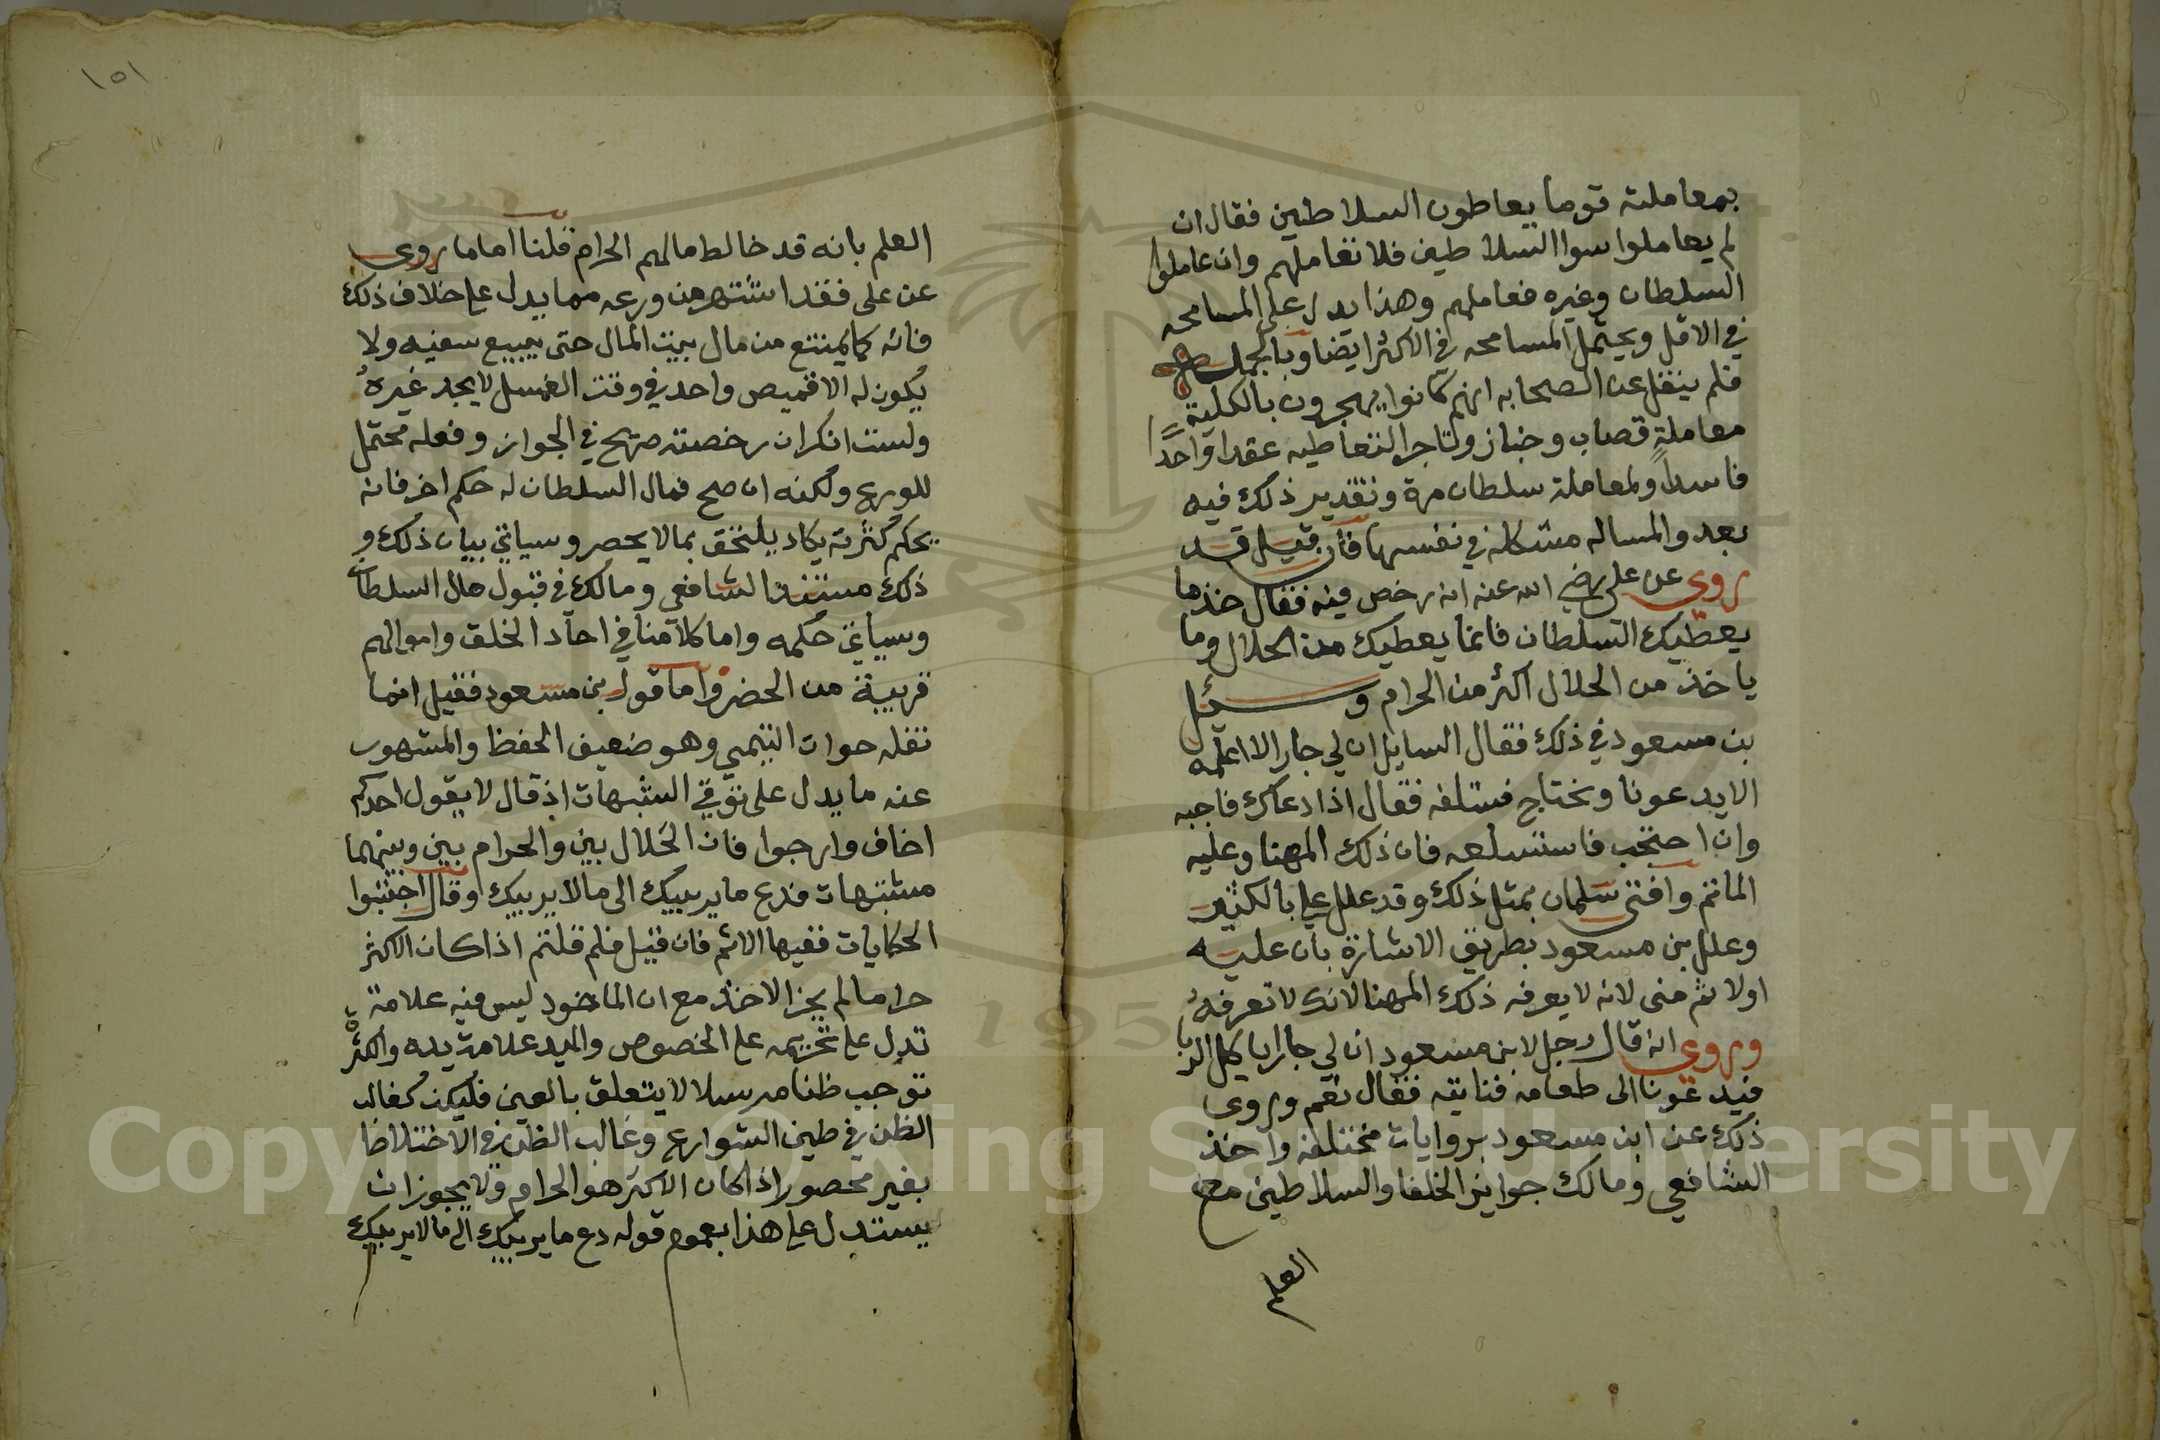 بمعاملته قوما يعاطون السلاطين فقال ان
لم يعاملوا سوا السلاطين فلا تعاملهم وان عاملوا
السلطان وغيره فعاملهم وهذا يدل على المسامحه
في الاقل ويحتمل المسامحه في الاكثر ايضا وبالجملة
فلم ينقل عن الصحابه انهم كانوا يهجرون بالكلية
معاملة قصاب وخباز وتاجر لتعاطيه عقدا واحدا
فاسدا ولمعاملة سلطان مرة وتقدير ذلك فيه
بعد والمساله مشكله في نفسها فان قيل قد
روي عن علي رضي الله عنه انه رخص فيه فقال خذ ما
يعطيك السلطان فانما يعطيك من الحلال وما
ياخذ من الحلال اكثر من الحرام وسئل
بن مسعود في ذلك فقال السايل ان لي جار الا اعلمه
الا يدعونا ونحتاج فنستلفه فقال اذا دعاك فاجبه
وان احتجب فاستسلعه فان ذلك المهنا وعليه
الماثم وافتى سلمان بمثل ذلك وقد علل علي بالكثير
وعلل بن مسعود بطريق الاشارة بان عليه
اولاثم منى لانه لا يعرفه ذلك المهنا لانك لا تعرفه
وروي انه قال رجل لابن مسعود ان لي جارا ياكل الربا
فيدعونا الى طعامه فناتيه فقال نعم وروى
ذلك عن ابن مسعود بروايات مختلفه واخذ
الشافعي ومالك جوايز الخلفا والسلاطين مع
العلم
١٥١
العلم بانه قد خالط مالهم الحرام قلنا اما ما روى
عن على فقد اشتهر من ورعه مما يدل على خلاف ذلك
فانه كان يمتنع من مال بيت المال حتى يبيع سفيه ولا
يكون له الا قميص واحد في وقت الغسل لا يجد غيره
ولست انكر ان رخصته صريح في الجواز وفعله محتمل
للورع ولكنه ان صح فمال السلطان له حكم اخر فانه
يحكم كثرته يكاد يلتحق بما لا يحصر وسياتي بيان ذلك و
ذلك مستند الشافعي ومالك في قبول مال السلطان
وسياتي حكمه واما كلامنا في احاد الخلق واموالهم
قريبة من الحضر واما قول بن مسعود فقيل انما
نقله حوات التيمي وهو ضعيف الحفظ والمشهور
عنه ما يدل على توقي الشبهات اذ قال لا يقول احدكم
اخاف وارجوا فان الحلال بين والحرام بين وبينهما
مشتبهات فدع ما يريبك الى ما لا يريبك وقال اجتنبوا
الحكايات ففيها الاثم فان قيل فلم قلتم اذا كان الاكثر
حراما لم يجز الاخذ مع ان الماخود ليس فيه علامة
تدل على تحريمه على الخصوص واليد علامة يده واكثر
توجب ظنا مرسلا لا يتعلق بالعين فليكن كغالب
الظن في طين الشوارع وغالب الظن في الاختلاط
بغير محصور اذا كان الاكثر هو الحرام ولا يجوز ان
يستدل على هذا بعموم قوله دع ما يريبك الى ما لا يريبك
Copyright © King Saud University
195